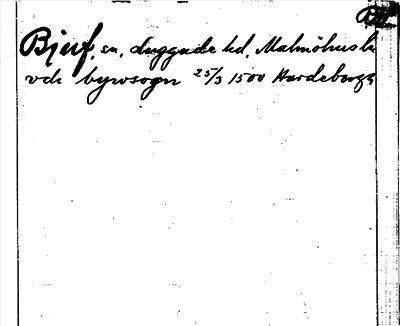 Bjerf, sn, Luggude hd, Malmöhus l.
och byrsogn 25/3 1500 Hardeberga